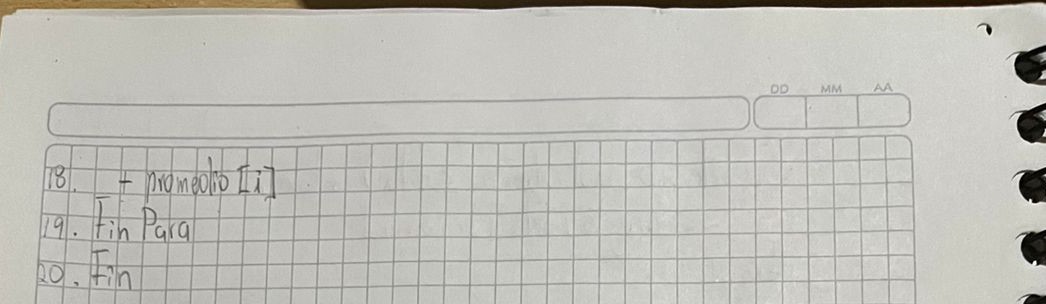 DD MM AA
18. + promedio [i]
19. Fin Para
20. Fin